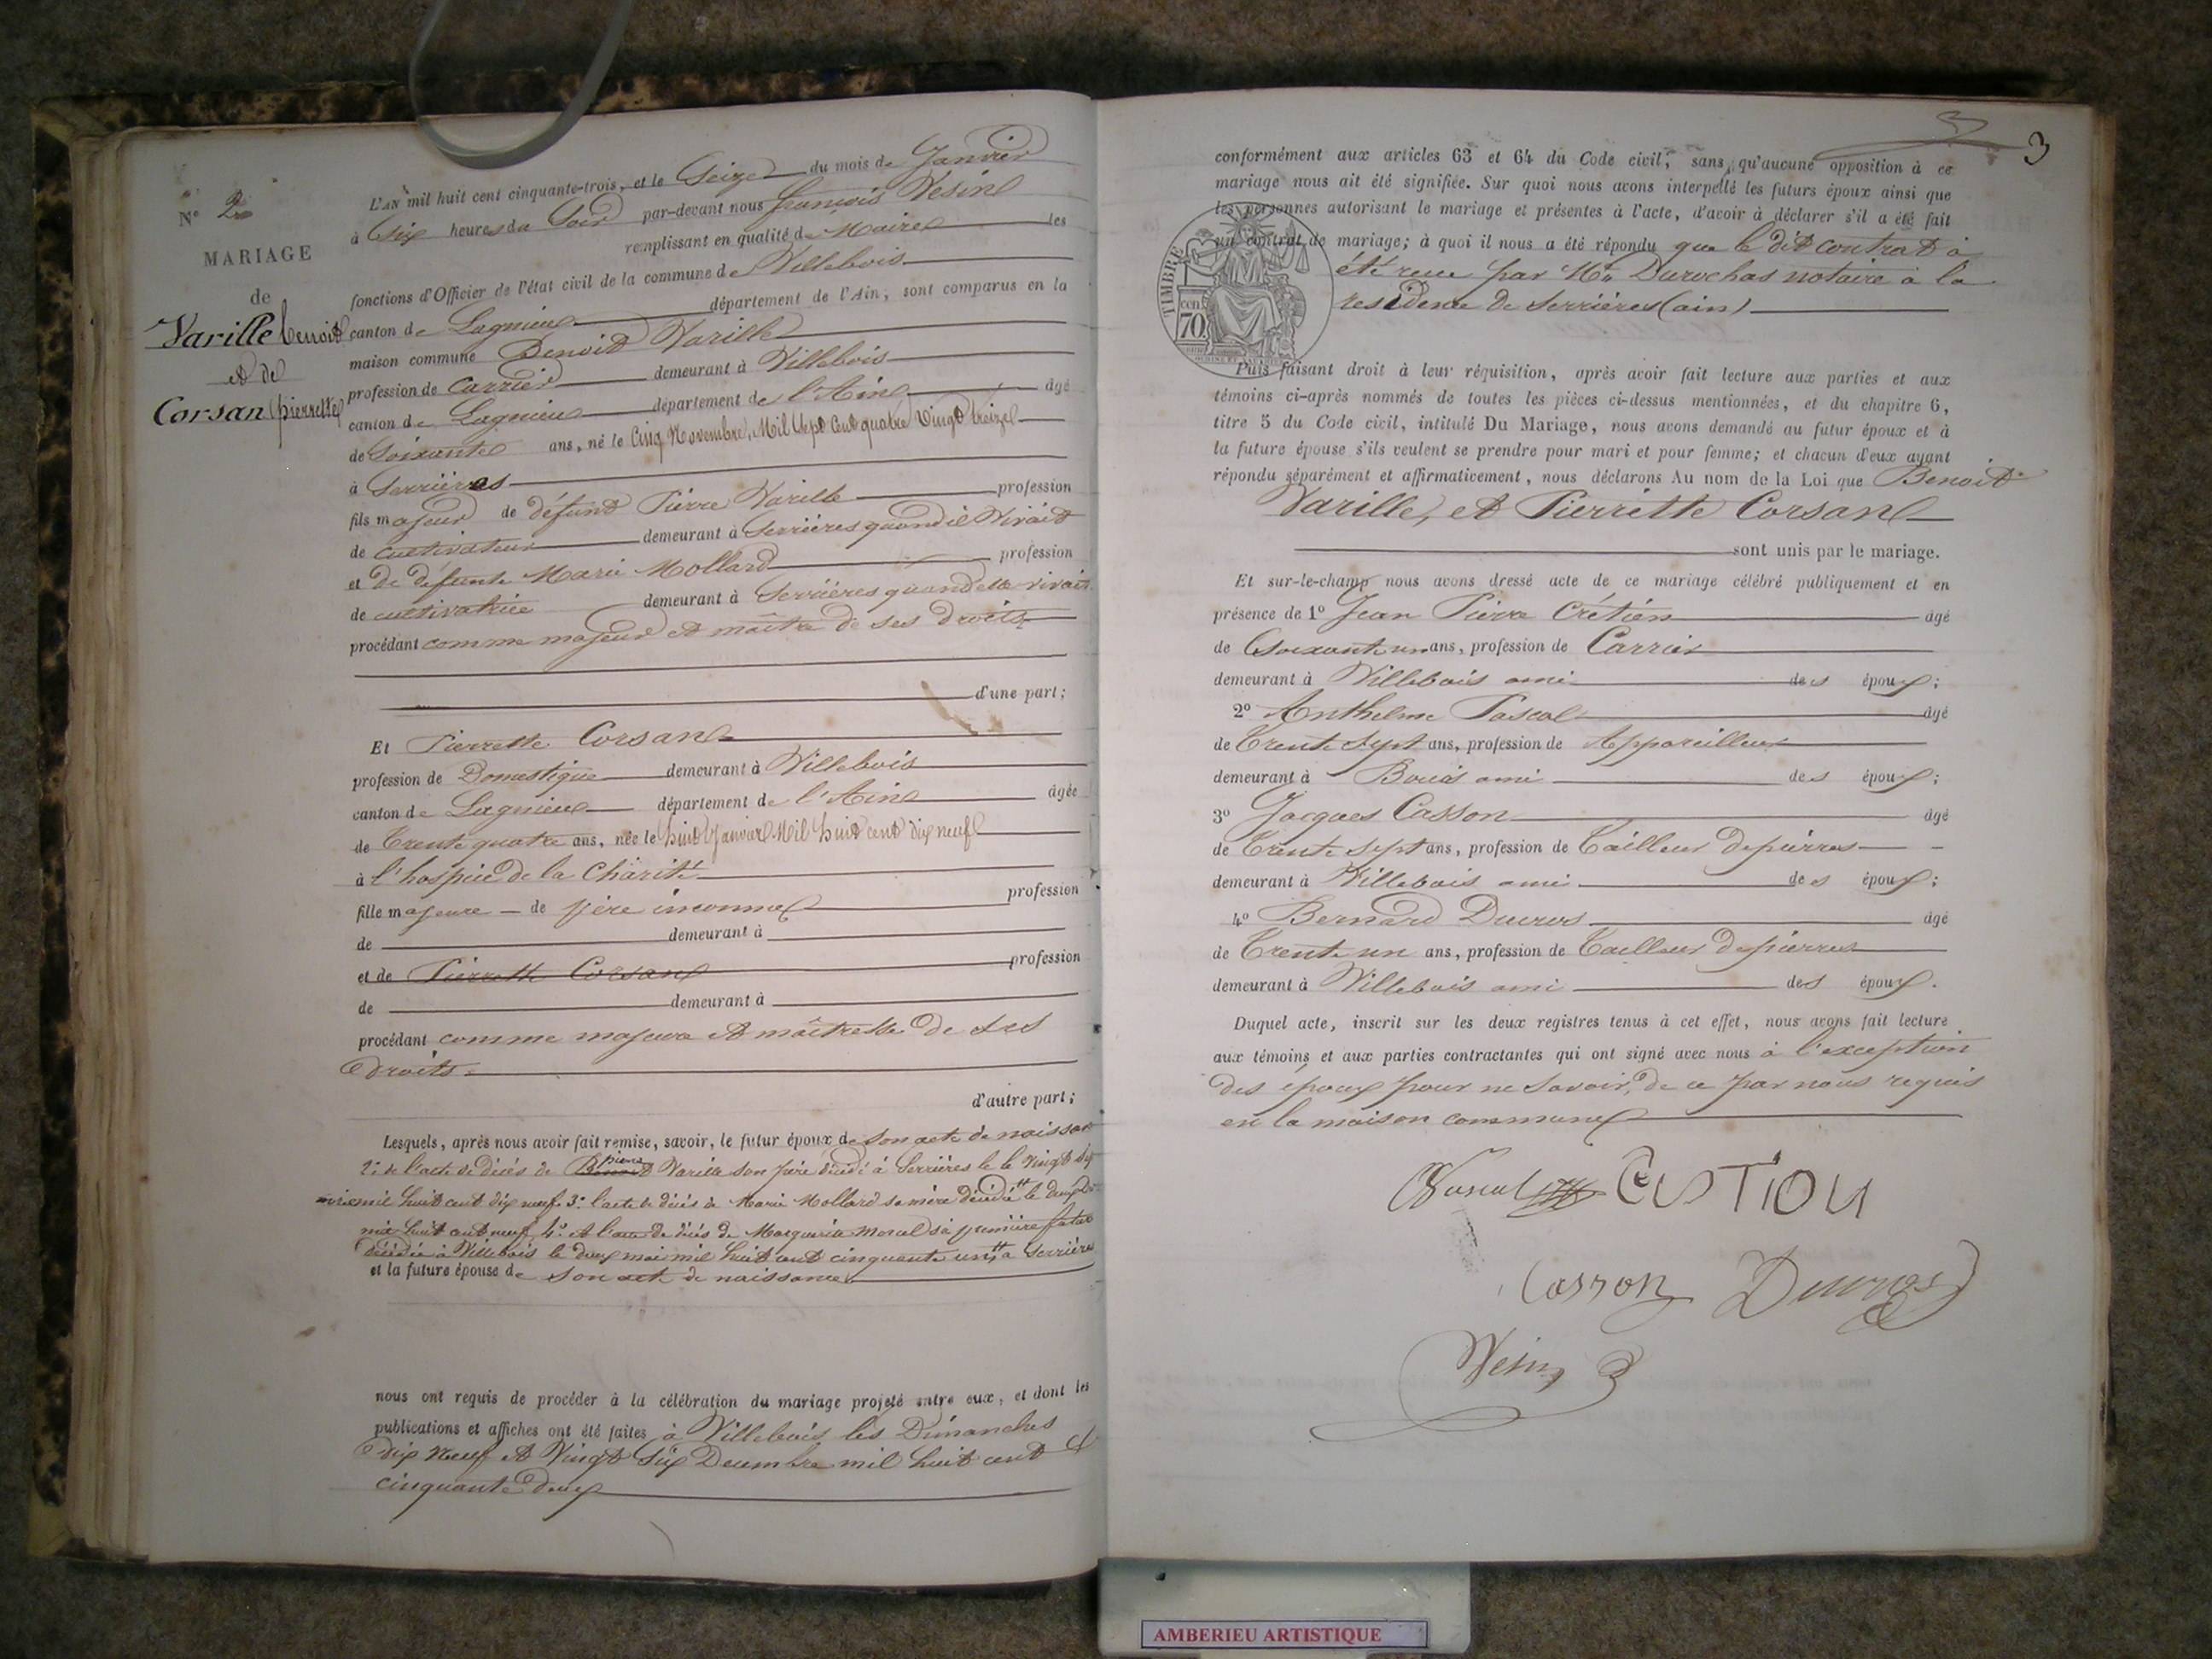 N° 2
MARIAGE
de
Varille benoit
et de
Corsan pierrette
L'AN mil huit cent cinquante-trois, et le Seize du mois de Janvier
à Six heures du Soir par-devant nous françois Vesin
remplissant en qualité de Maire les
fonctions d'Officier de l'état civil de la commune de Villebois
canton de Lagnieu département de l'Ain, sont comparus en la
maison commune Benoit Varille
profession de Carrier demeurant à Villebois
canton de Lagnieu département de l'Ain âgé
de Soixante ans, né le Cinq Novembre, Mil Sept Cent quatre Vingt treize
à Serrières
fils majeur de défunt Pierre Varille profession
de cultivateur demeurant à Serrières quand il Vivait
et de défunte Marie Mollard profession
de cultivatrice demeurant à Serrières quand elle vivait
procédant comme majeur et maître de ses droits
d'une part;
Et Pierrette Corsan
profession de Domestique demeurant à Villebois
canton de Lagnieu département de l'Ain âgée
de Trente quatre ans, née le huit Janvier Mil huit cent dix neuf
à l'hospice de la Charité
fille majeure de père inconnu profession
de demeurant à
et de Pierrette Corsan profession
de demeurant à
procédant comme majeure et maîtresse de ses
droits.
d'autre part;
Lesquels, après nous avoir fait remise, savoir, le futur époux de son acte de naissance
2° de l'acte de décès de Benoit pierre Varille son père décédé à Serrières le le Vingt
mil huit cent dix neuf 3° l'acte de décès de Marie Mollard sa mère décédée le deux
mil huit cent neuf, 4° et l'acte de décès de Marguerite Morel sa première
décédée à Villebois le deux mai mil huit cent cinquante un, à Serrières
et la future épouse de son acte de naissance
nous ont requis de procéder à la célébration du mariage projeté entre eux, et dont les
publications et affiches ont été faites à Villebois les Dimanches
dix Neuf et Vingt Six Decembre mil huit cent
cinquante deux
3
conformément aux articles 63 et 64 du Code civil, sans qu'aucune opposition à ce
mariage nous ait été signifiée. Sur quoi nous avons interpellé les futurs époux ainsi que
les personnes autorisant le mariage et présentes à l'acte, d'avoir à déclarer s'il a été fait
un contrat de mariage; à quoi il nous a été répondu que le dit contrat à
été reçu par Me Durochas notaire à la
residence de Serrières (ain)
TIMBRE
70
cen
Puis faisant droit à leur réquisition, après avoir fait lecture aux parties et aux
témoins ci-après nommés de toutes les pièces ci-dessus mentionnées, et du chapitre 6,
titre 5 du Code civil, intitulé Du Mariage, nous avons demandé au futur époux et à
la future épouse s'ils veulent se prendre pour mari et pour femme; et chacun d'eux ayant
répondu séparément et affirmativement, nous déclarons Au nom de la Loi que Benoit
Varille, et Pierrette Corsan
sont unis par le mariage.
Et sur-le-champ nous avons dressé acte de ce mariage célébré publiquement et en
présence de 1° Jean Pierre Crétien âgé
de Soixante un ans, profession de Carrier
demeurant à Villebois ami des époux;
2° Anthelme Pascal âgé
de Trente Sept ans, profession de Appareilleur
demeurant à Bouis ami des époux;
3° Jacques Casson âgé
de Trente Sept ans, profession de Tailleur de pierres
demeurant à Villebois ami des époux;
4° Bernard Ducros âgé
de Trente un ans, profession de Tailleur de pierres
demeurant à Villebois ami des époux.
Duquel acte, inscrit sur les deux registres tenus à cet effet, nous avons fait lecture
aux témoins et aux parties contractantes qui ont signé avec nous à l'exception
des époux pour ne Savoir, de ce par nous requis
en la maison commune
Casson Ducros
Vesin
AMBERIEU ARTISTIQUE